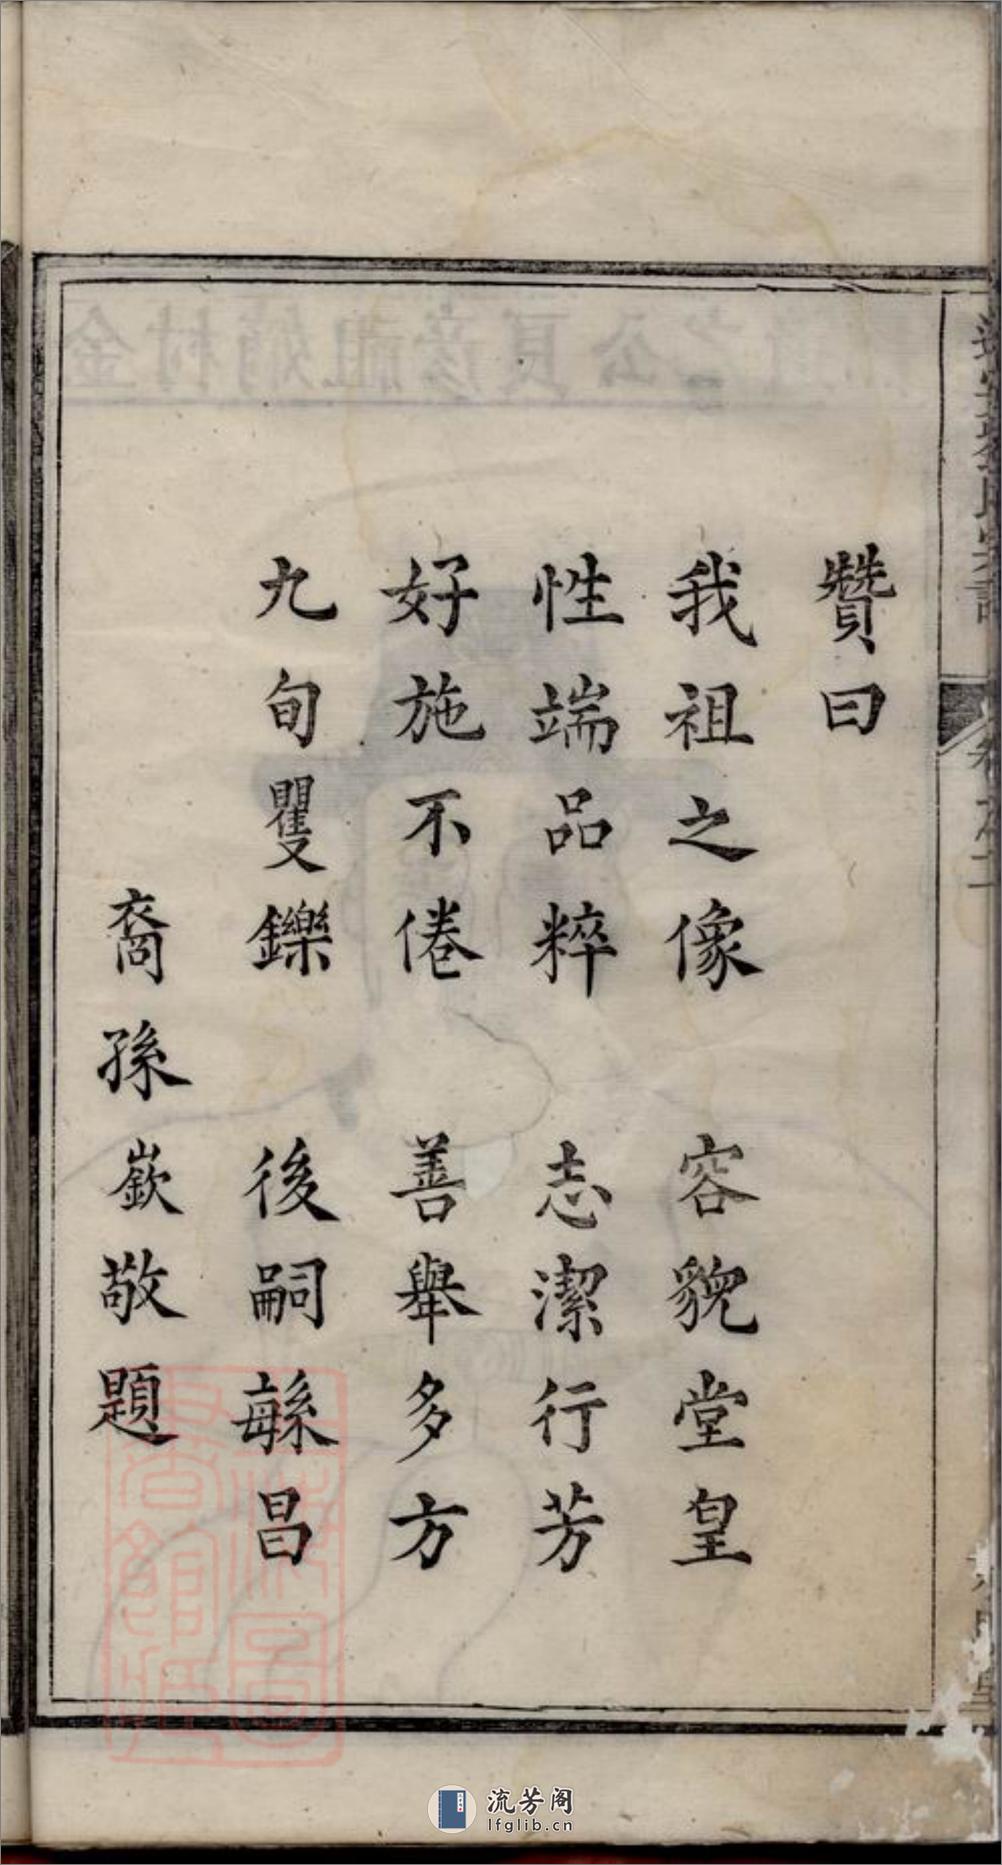 贊曰
我祖之像　容貌堂皇
性端品粹　志潔行芳
好施不倦　善舉多方
九旬矍鑠　後嗣緐昌
裔孫嶔敬題
流芳阁
lfglib.cn